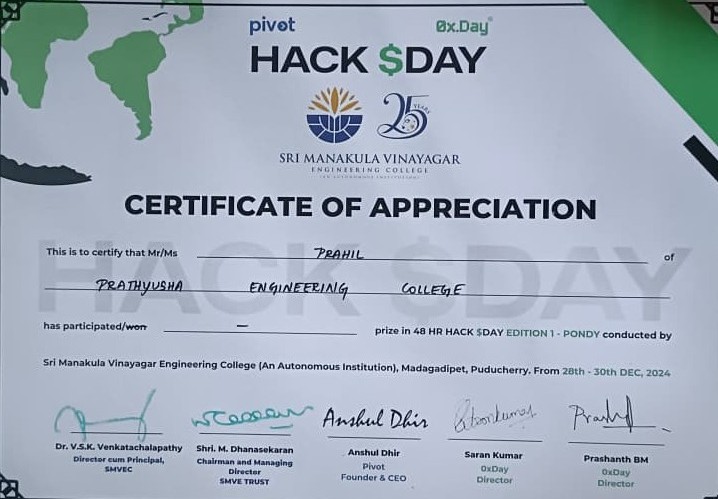 pivot 0x.Day
HACK $DAY
25 YEARS
SRI MANAKULA VINAYAGAR
ENGINEERING COLLEGE
(AN AUTONOMOUS INSTITUTION)
CERTIFICATE OF APPRECIATION
HACK $DAY
This is to certify that Mr/Ms PRAHIL of
PRATHYUSHA ENGINEERING COLLEGE
has participated/won – prize in 48 HR HACK $DAY EDITION 1 - PONDY conducted by
Sri Manakula Vinayagar Engineering College (An Autonomous Institution), Madagadipet, Puducherry. From 28th - 30th DEC, 2024
Anshul Dhir
Dr. V.S.K. Venkatachalapathy
Director cum Principal,
SMVEC
Shri. M. Dhanasekaran
Chairman and Managing
Director
SMVE TRUST
Anshul Dhir
Pivot
Founder & CEO
Saran Kumar
0xDay
Director
Prashanth BM
0xDay
Director